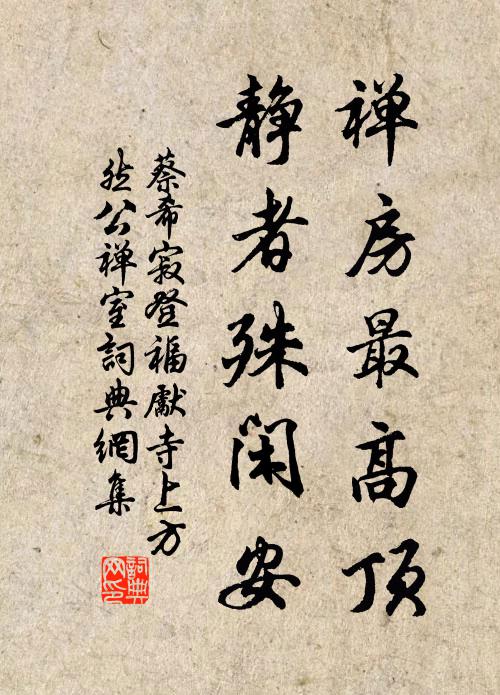 禅房最高顶
静者殊闲安
蔡希寂登福獻寺上方
然公禅室詞典網集
詞典网印